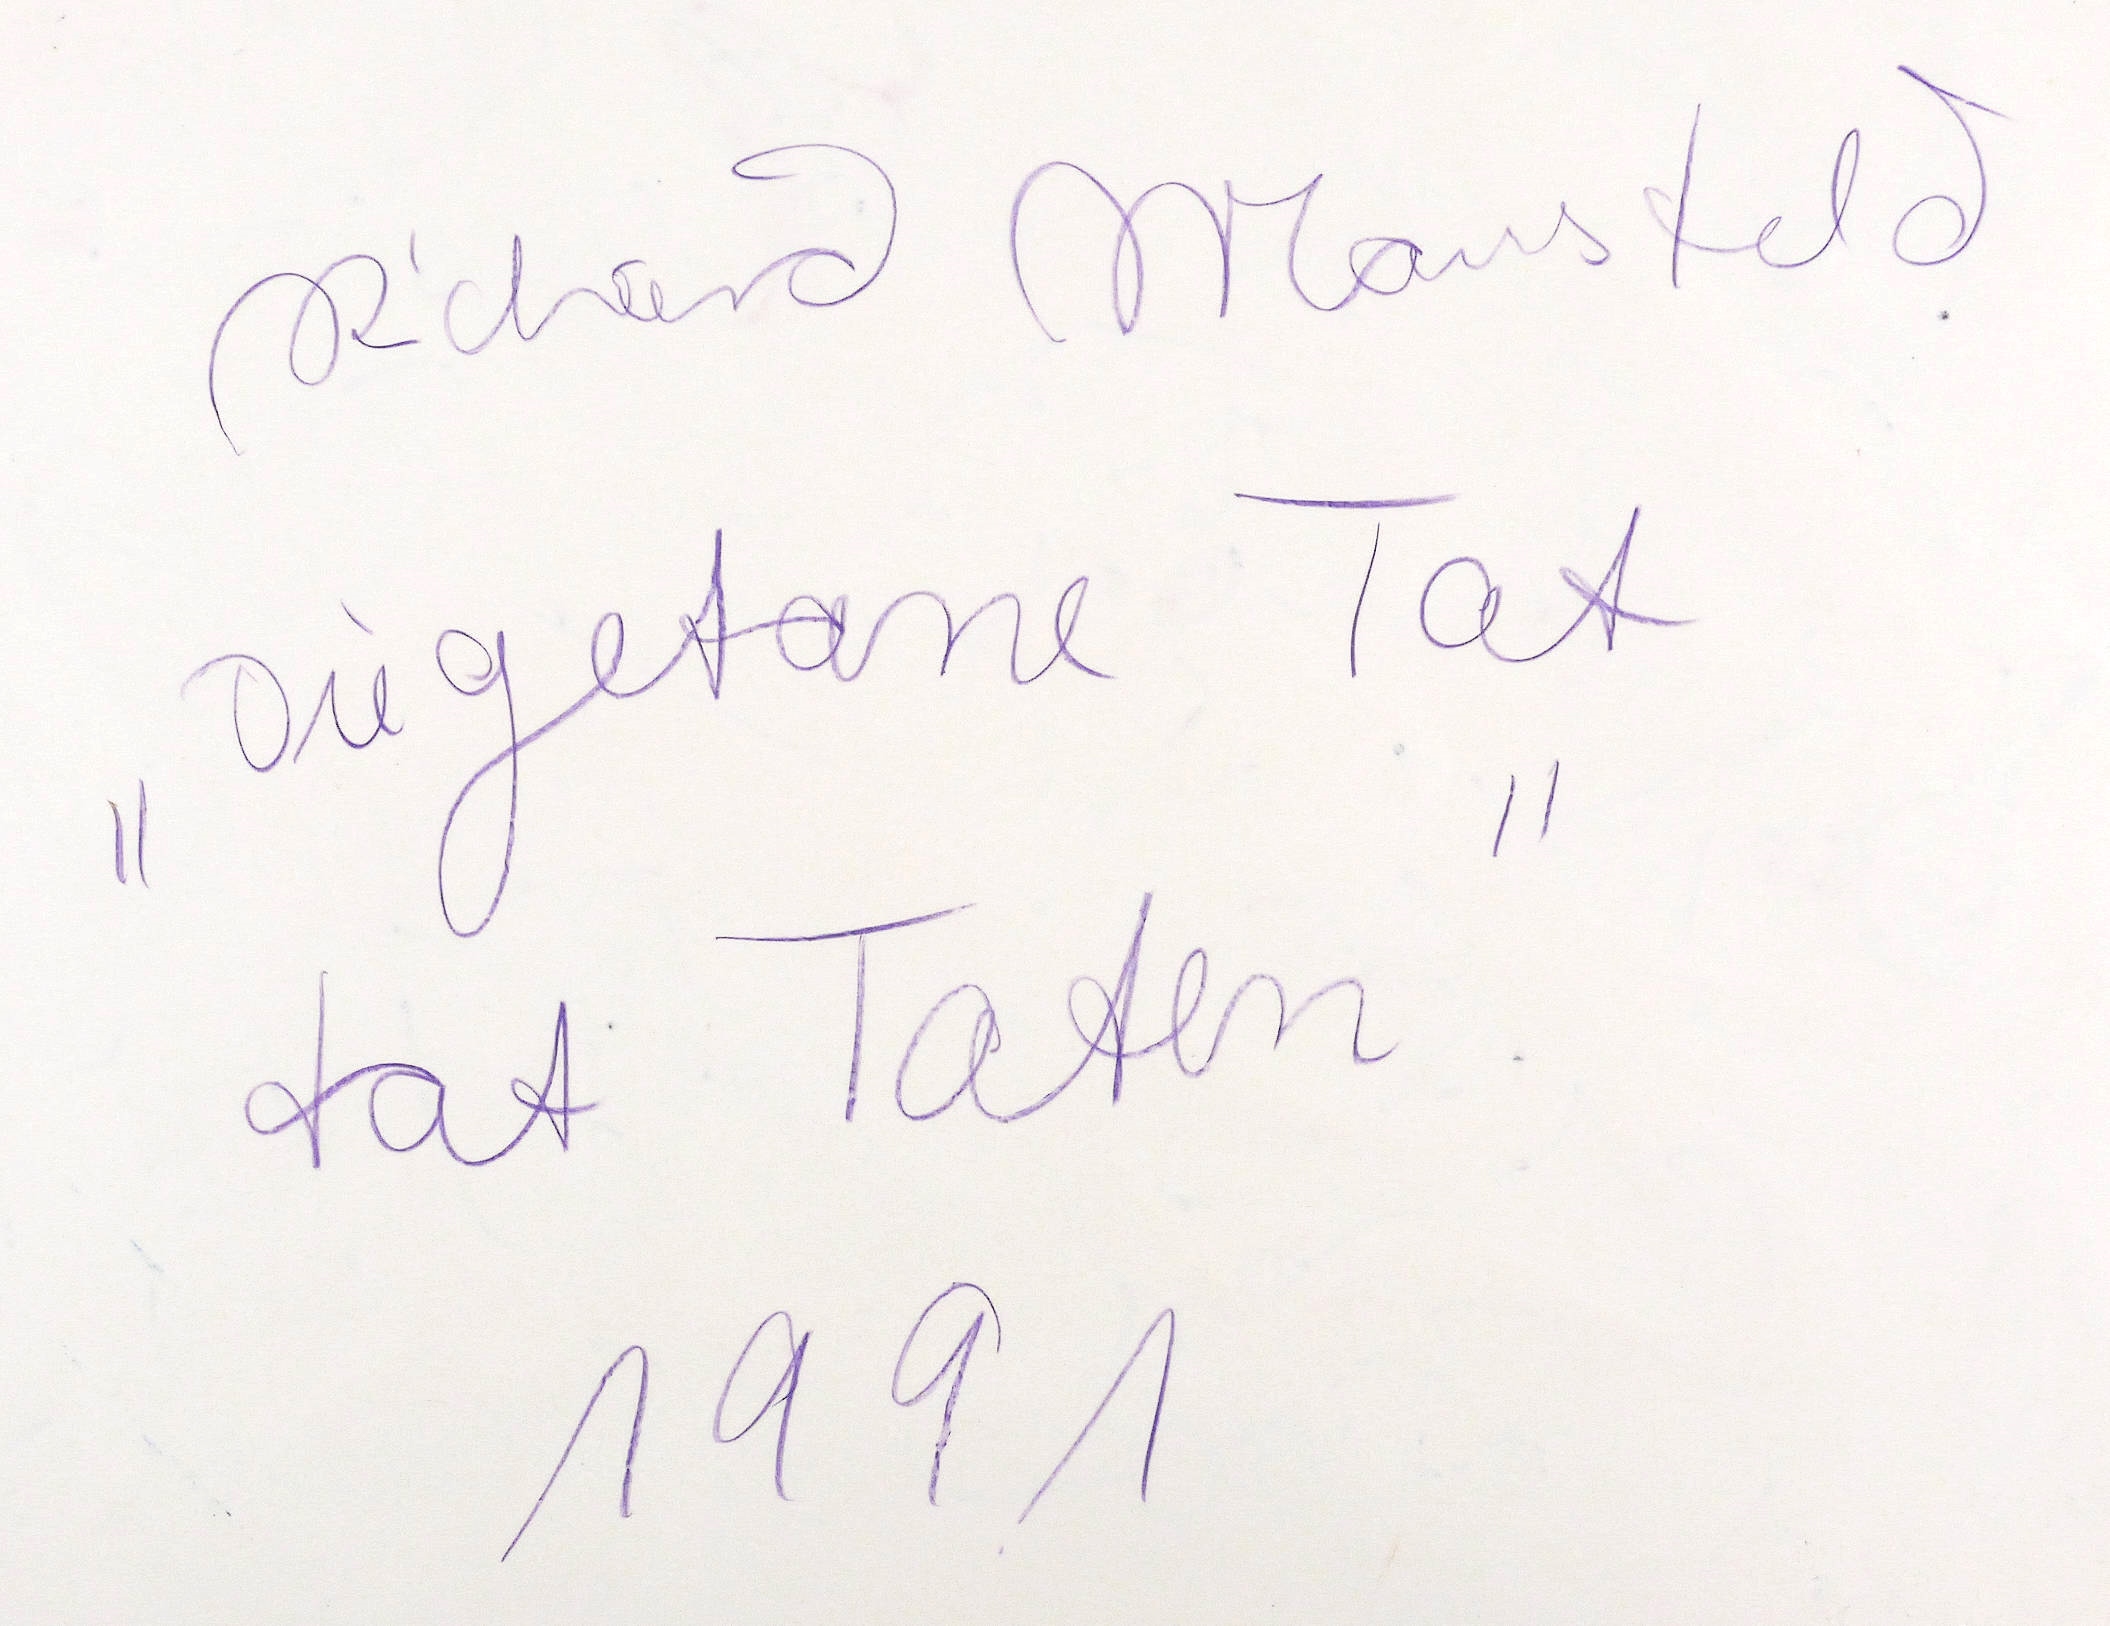 Richard Mansfeld
Die getane Tat
„ "
tat Taten
1991